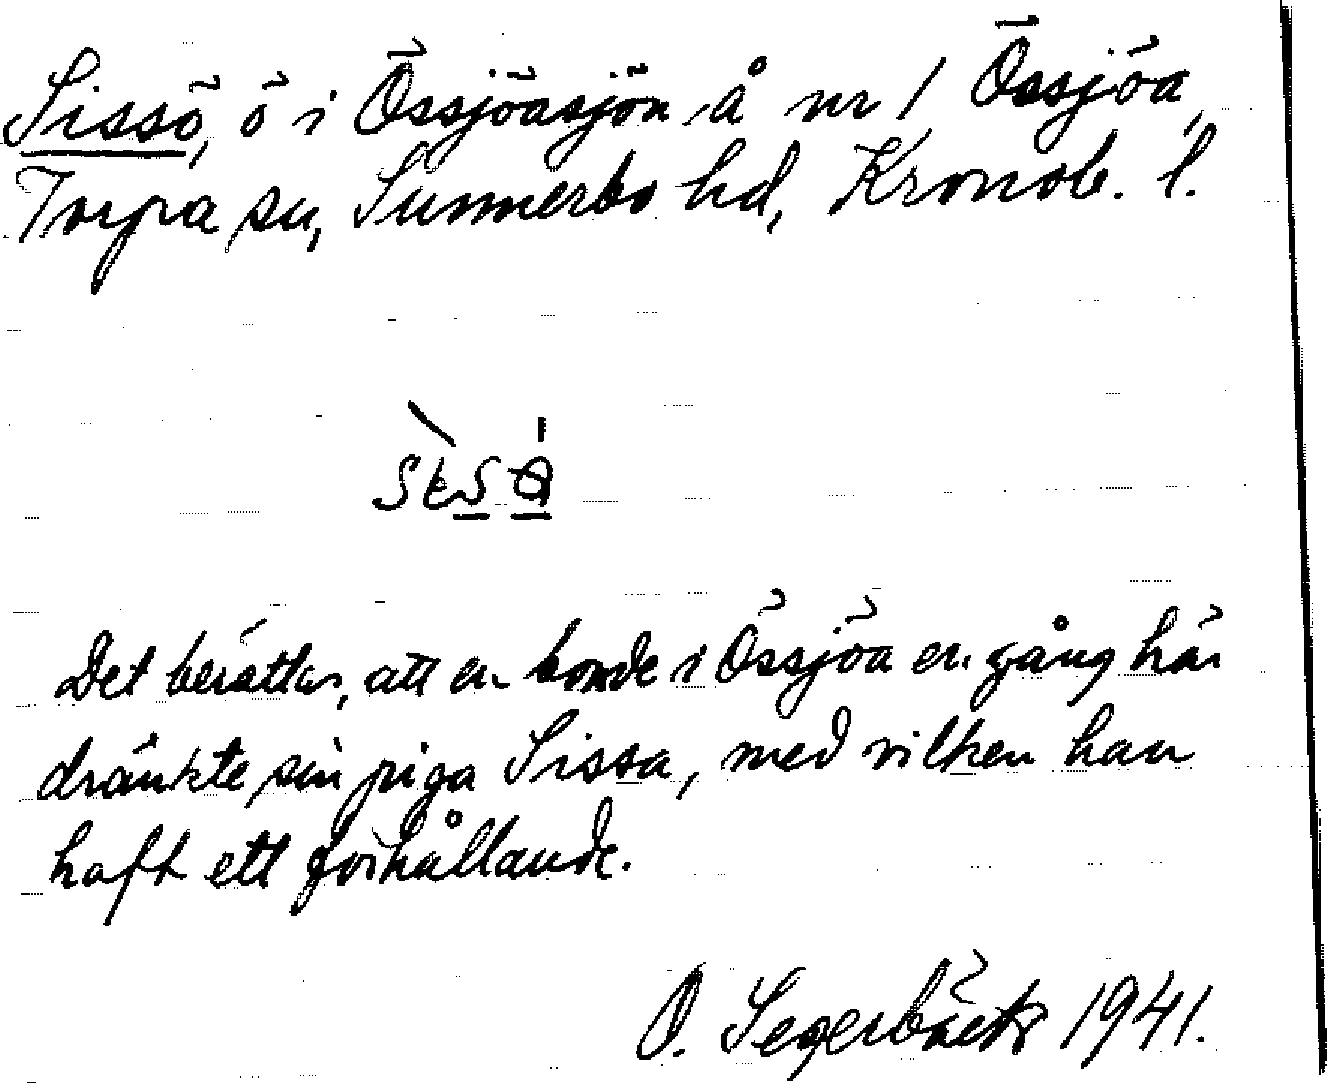 Sissö, ö i Össjöasjön å nr 1 Össjöa,
Torpa sn, Sunnerbo hd, Kronob. l.
Det berättas, att en bonde i Össjöa en gång här
dränkte sin piga Sissa, med vilken han
haft ett förhållande.
O. Segerbäck 1941.